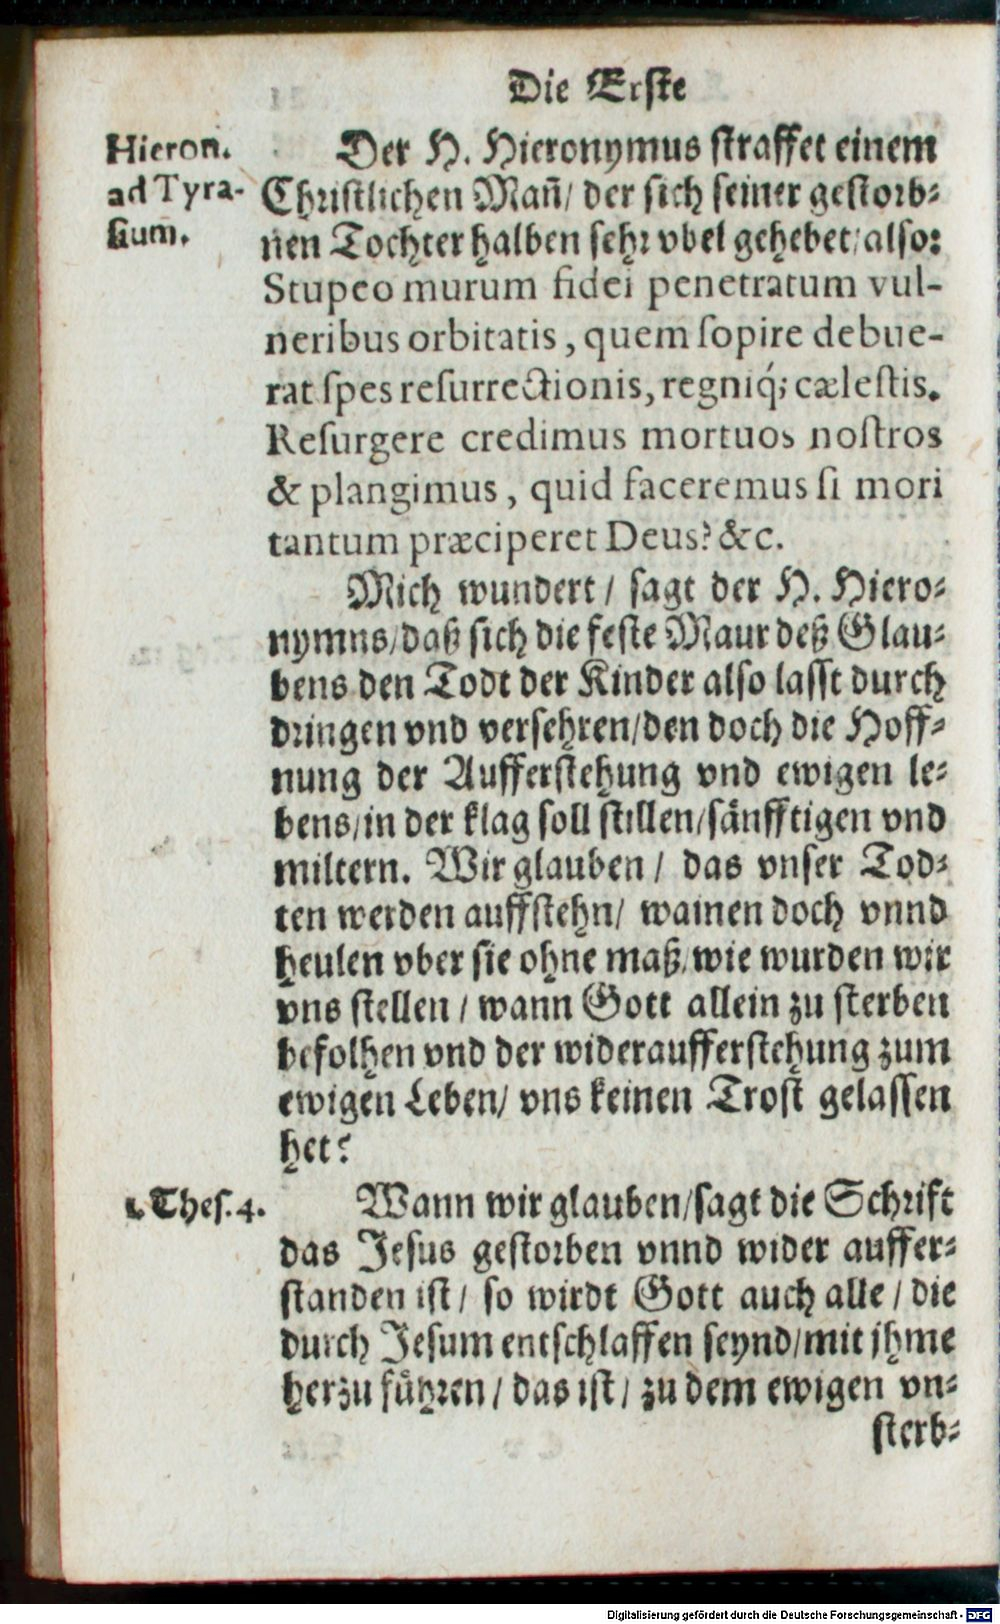 Die Erste
Hieron.
ad Tyra-
sium.
Der H. Hieronymus straffet einem
Christlichen Mañ/ der sich seiner gestorb-
nen Tochter halben sehr vbel gehebet/ also:
Stupeo murum fidei penetratum vul-
neribus orbitatis, quem sopire debue-
rat spes resurrectionis, regniq́; cælestis.
Resurgere credimus mortuos nostros
& plangimus, quid faceremus si mori
tantum præciperet Deus? &c.
Mich wundert / sagt der H. Hiero-
nymns/ daß sich die feste Maur deß Glau-
bens den Todt der Kinder also lasst durch
dringen vnd versehren/ den doch die Hoff-
nung der Aufferstehung vnd ewigen le-
bens/ in der klag soll stillen/ sänfftigen vnd
miltern. Wir glauben / das vnser Tod-
ten werden auffstehn/ wainen doch vnnd
heulen vber sie ohne maß/ wie wurden wir
vns stellen / wann Gott allein zu sterben
befolhen vnd der wideraufferstehung zum
ewigen Leben/ vns keinen Trost gelassen
het?
1. Thes. 4.
Wann wir glauben/ sagt die Schrift
das Jesus gestorben vnnd wider auffer-
standen ist / so wirdt Gott auch alle / die
durch Jesum entschlaffen seynd/ mit jhme
herzu führen / das ist / zu dem ewigen vn-
sterb-
Digitalisierung gefördert durch die Deutsche Forschungsgemeinschaft - DFG